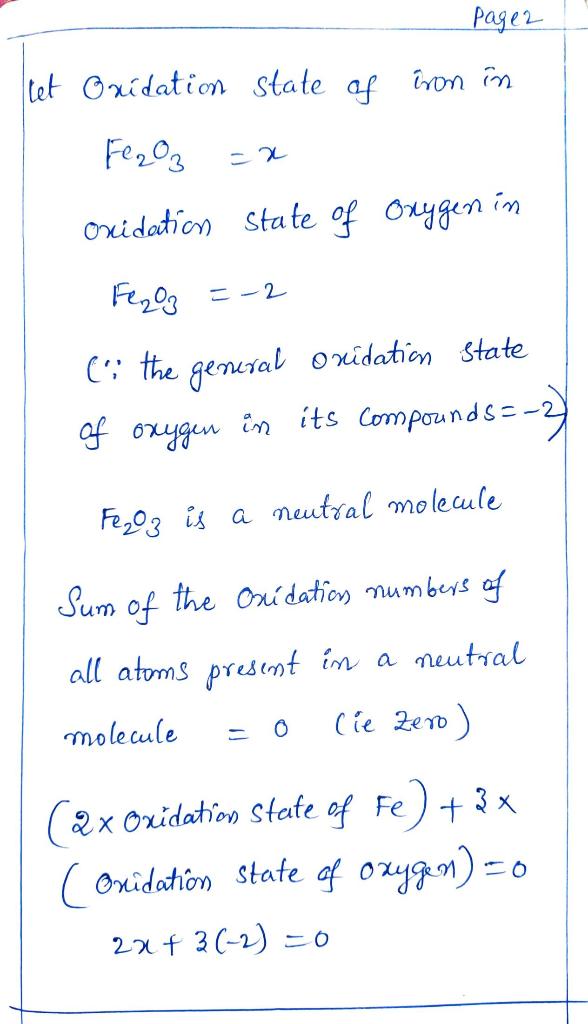 Page 2
let Oxidation state of iron in
Fe₂O₃ = x
oxidation state of oxygen in
Fe₂O₃ = -2
(∵ the general oxidation state
of oxygen in its compounds = -2)
Fe₂O₃ is a neutral molecule
Sum of the Oxidation numbers of
all atoms present in a neutral
molecule = 0 (ie zero)
(2 x Oxidation state of Fe) + 3 x
(Oxidation state of oxygen) = 0
2x + 3(-2) = 0